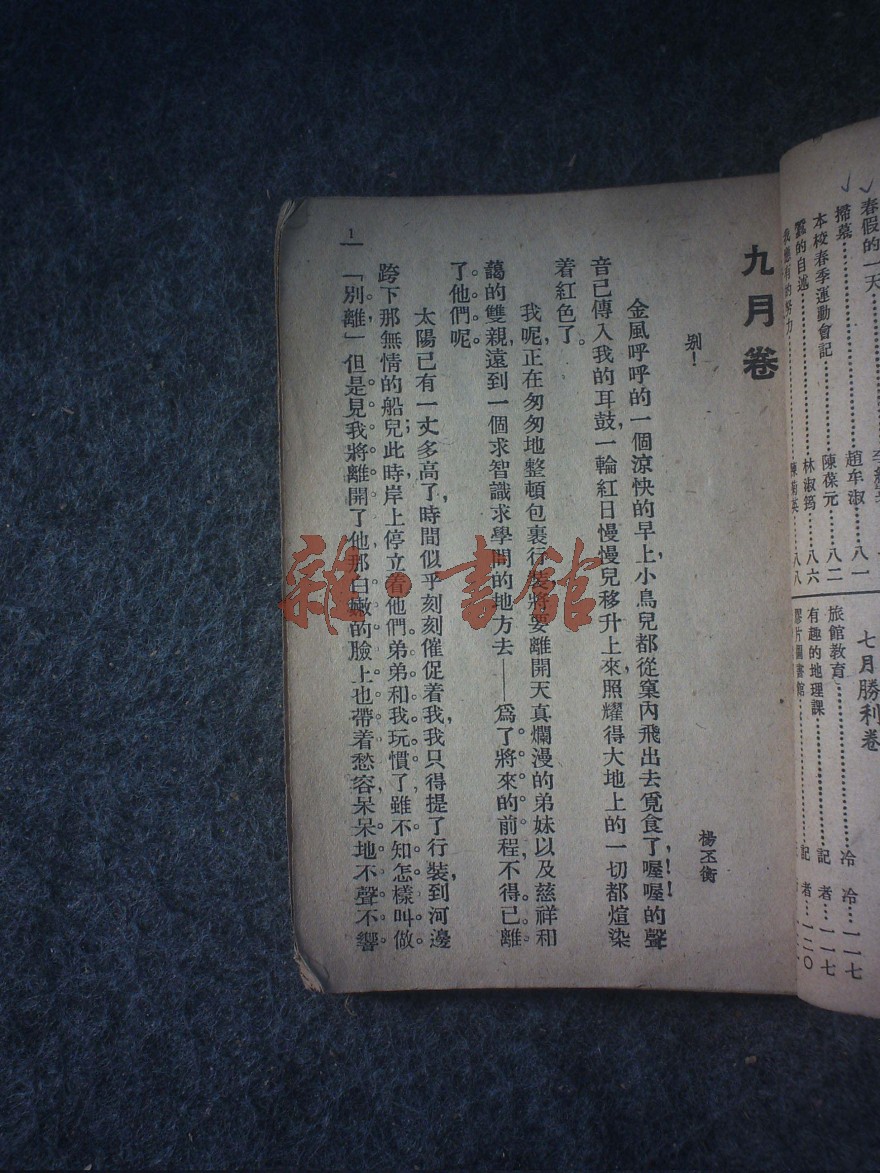 春假的一天
掃墓……趙牟淑…八一
本校春季運動會記……陳葆元…八二
蠶的自述……林淑筠…八六
我應有的努力……英…八八
七月勝利卷
旅館教育……冷 冷…一一七
有趣的地理課……記 者…一一七
膠片圖書館……記 者…一二〇
九月卷
別!
楊丕衡
金風呼呼的一個涼快的早上,小鳥兒都從窠內飛出去覓食了,喔!喔!的聲
音已傳入我的耳鼓,一輪紅日慢慢兒移升上來,照耀得大地上的一切都煊染
着紅色了。
我呢,正在匆匆地整頓包裹行裝,將要離開天真爛漫的弟妹以及慈祥和
藹的雙親,遠到一個求智識求學問的地方去——爲了將來的前程,不得已離
了他們呢。
太陽已有一丈多高了,時間似乎刻刻催促着我,我只得提了行裝,到河邊
跨下那無情的船兒;此時岸上停立着他們。弟弟和我玩慣了,雖不知怎樣叫做
「別離」,但是見我將離開了他,那白嫩的臉上也帶着愁容,呆呆地不聲不響
1
雜·書館